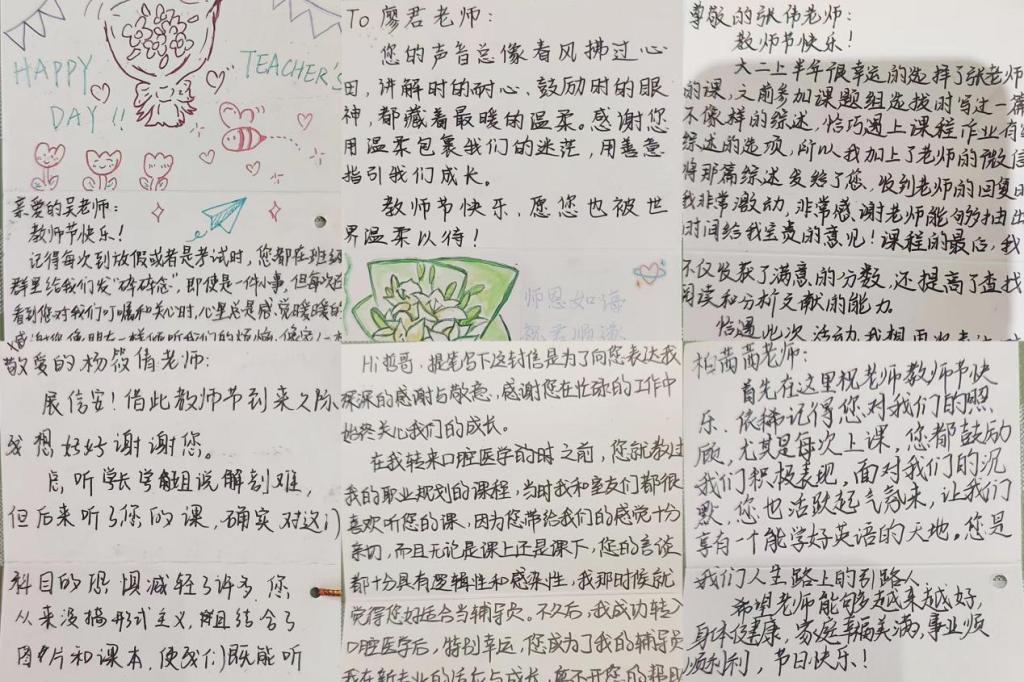 HAPPY TEACHER'S
DAY!!
亲爱的吴老师:
教师节快乐!
记得每次到放假或者是考试时,您都在班级
群里给我们发“碎碎念”,即使是一件小事,但每次
看到您对我们叮嘱和关心时,心里总是感觉暖暖的
To 廖君老师:
您的声音总像春风拂过心
田,讲解时的耐心、鼓励时的眼
神,都藏着最暖的温柔。感谢您
用温柔包裹我们的迷茫,用善意
指引我们成长。
教师节快乐,愿您也被世
界温柔以待!
师恩如海
尊敬的张伟老师:
教师节快乐!
大二上半年很幸运的选择了张老师
的课,之前参加课题组选拔时写过一篇
不像样的综述,恰巧遇上课程作业有
综述的选项,所以我加上了老师的微信
将那篇综述发给了您,收到老师的回复时
我非常激动,非常感谢老师能够抽出
时间给我宝贵的意见!课程的最后,我
不仅收获了满意的分数,还提高了查找
阅读和分析文献的能力。
恰遇此次活动,我想再次表达
敬爱的杨筱倩老师:
展信安!借此教师节到来之际
我想好好谢谢您。
总听学长学姐说解剖难,
但后来听了您的课,确实对这门
科目的恐惧减轻了许多,您
从来没搞形式主义,结合了
图片和课本,使我们既能听
Hi 鹏哥,提笔写下这封信是为了向您表达我
深深的感谢与敬意,感谢您在忙碌的工作中
始终关心我们的成长。
在我转来口腔医学的时之前,您就教过
我的职业规划的课程,当时我和室友们都很
喜欢听您的课,因为您带给我们的感觉十分
亲切,而且无论是课上还是课下,您的言谈
都十分具有逻辑性和感染性,我那时候就
觉得您好适合当辅导员。不久后,我成功转入
口腔医学后,特别幸运,您成为了我的辅导员
我在新专业的适应与成长,离不开您的帮助
柏茜茜老师:
首先在这里祝老师教师节快
乐,依稀记得您对我们的照
顾,尤其是每次上课,您都鼓励
我们积极表现,面对我们的沉
默,您也活跃起气氛来,让我们
享有一个能学好英语的天地。您是
我们人生路上的引路人
希望老师能够越来越好,
身体健康,家庭幸福美满,事业顺
顺利利,节日快乐!